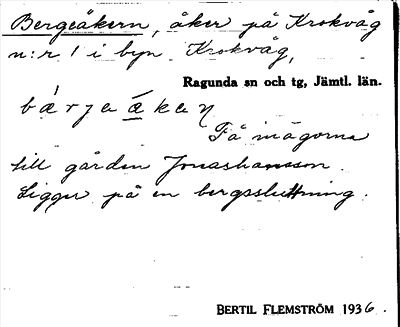 Bergeåkern, åker på Krokvåg
n:r 1 i byn Krokvåg,
Ragunda sn och tg, Jämtl. län.
På inägorna
till gården Jonashansson.
Ligger på en bergssluttning.
BERTIL FLEMSTRÖM 1936.